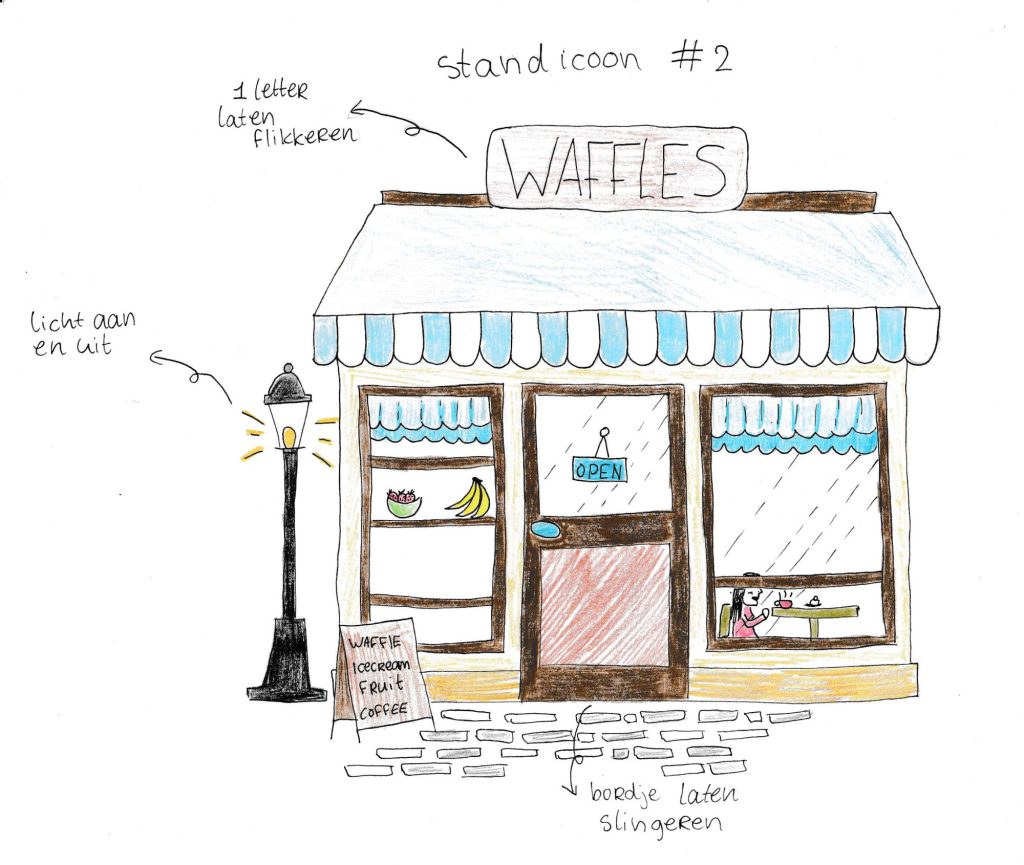 standicoon #2
1 letter
laten
flikkeren
WAFFLES
licht aan
en uit
OPEN
WAFFLE
ICECREAM
FRUIT
COFFEE
bordje laten
slingeren